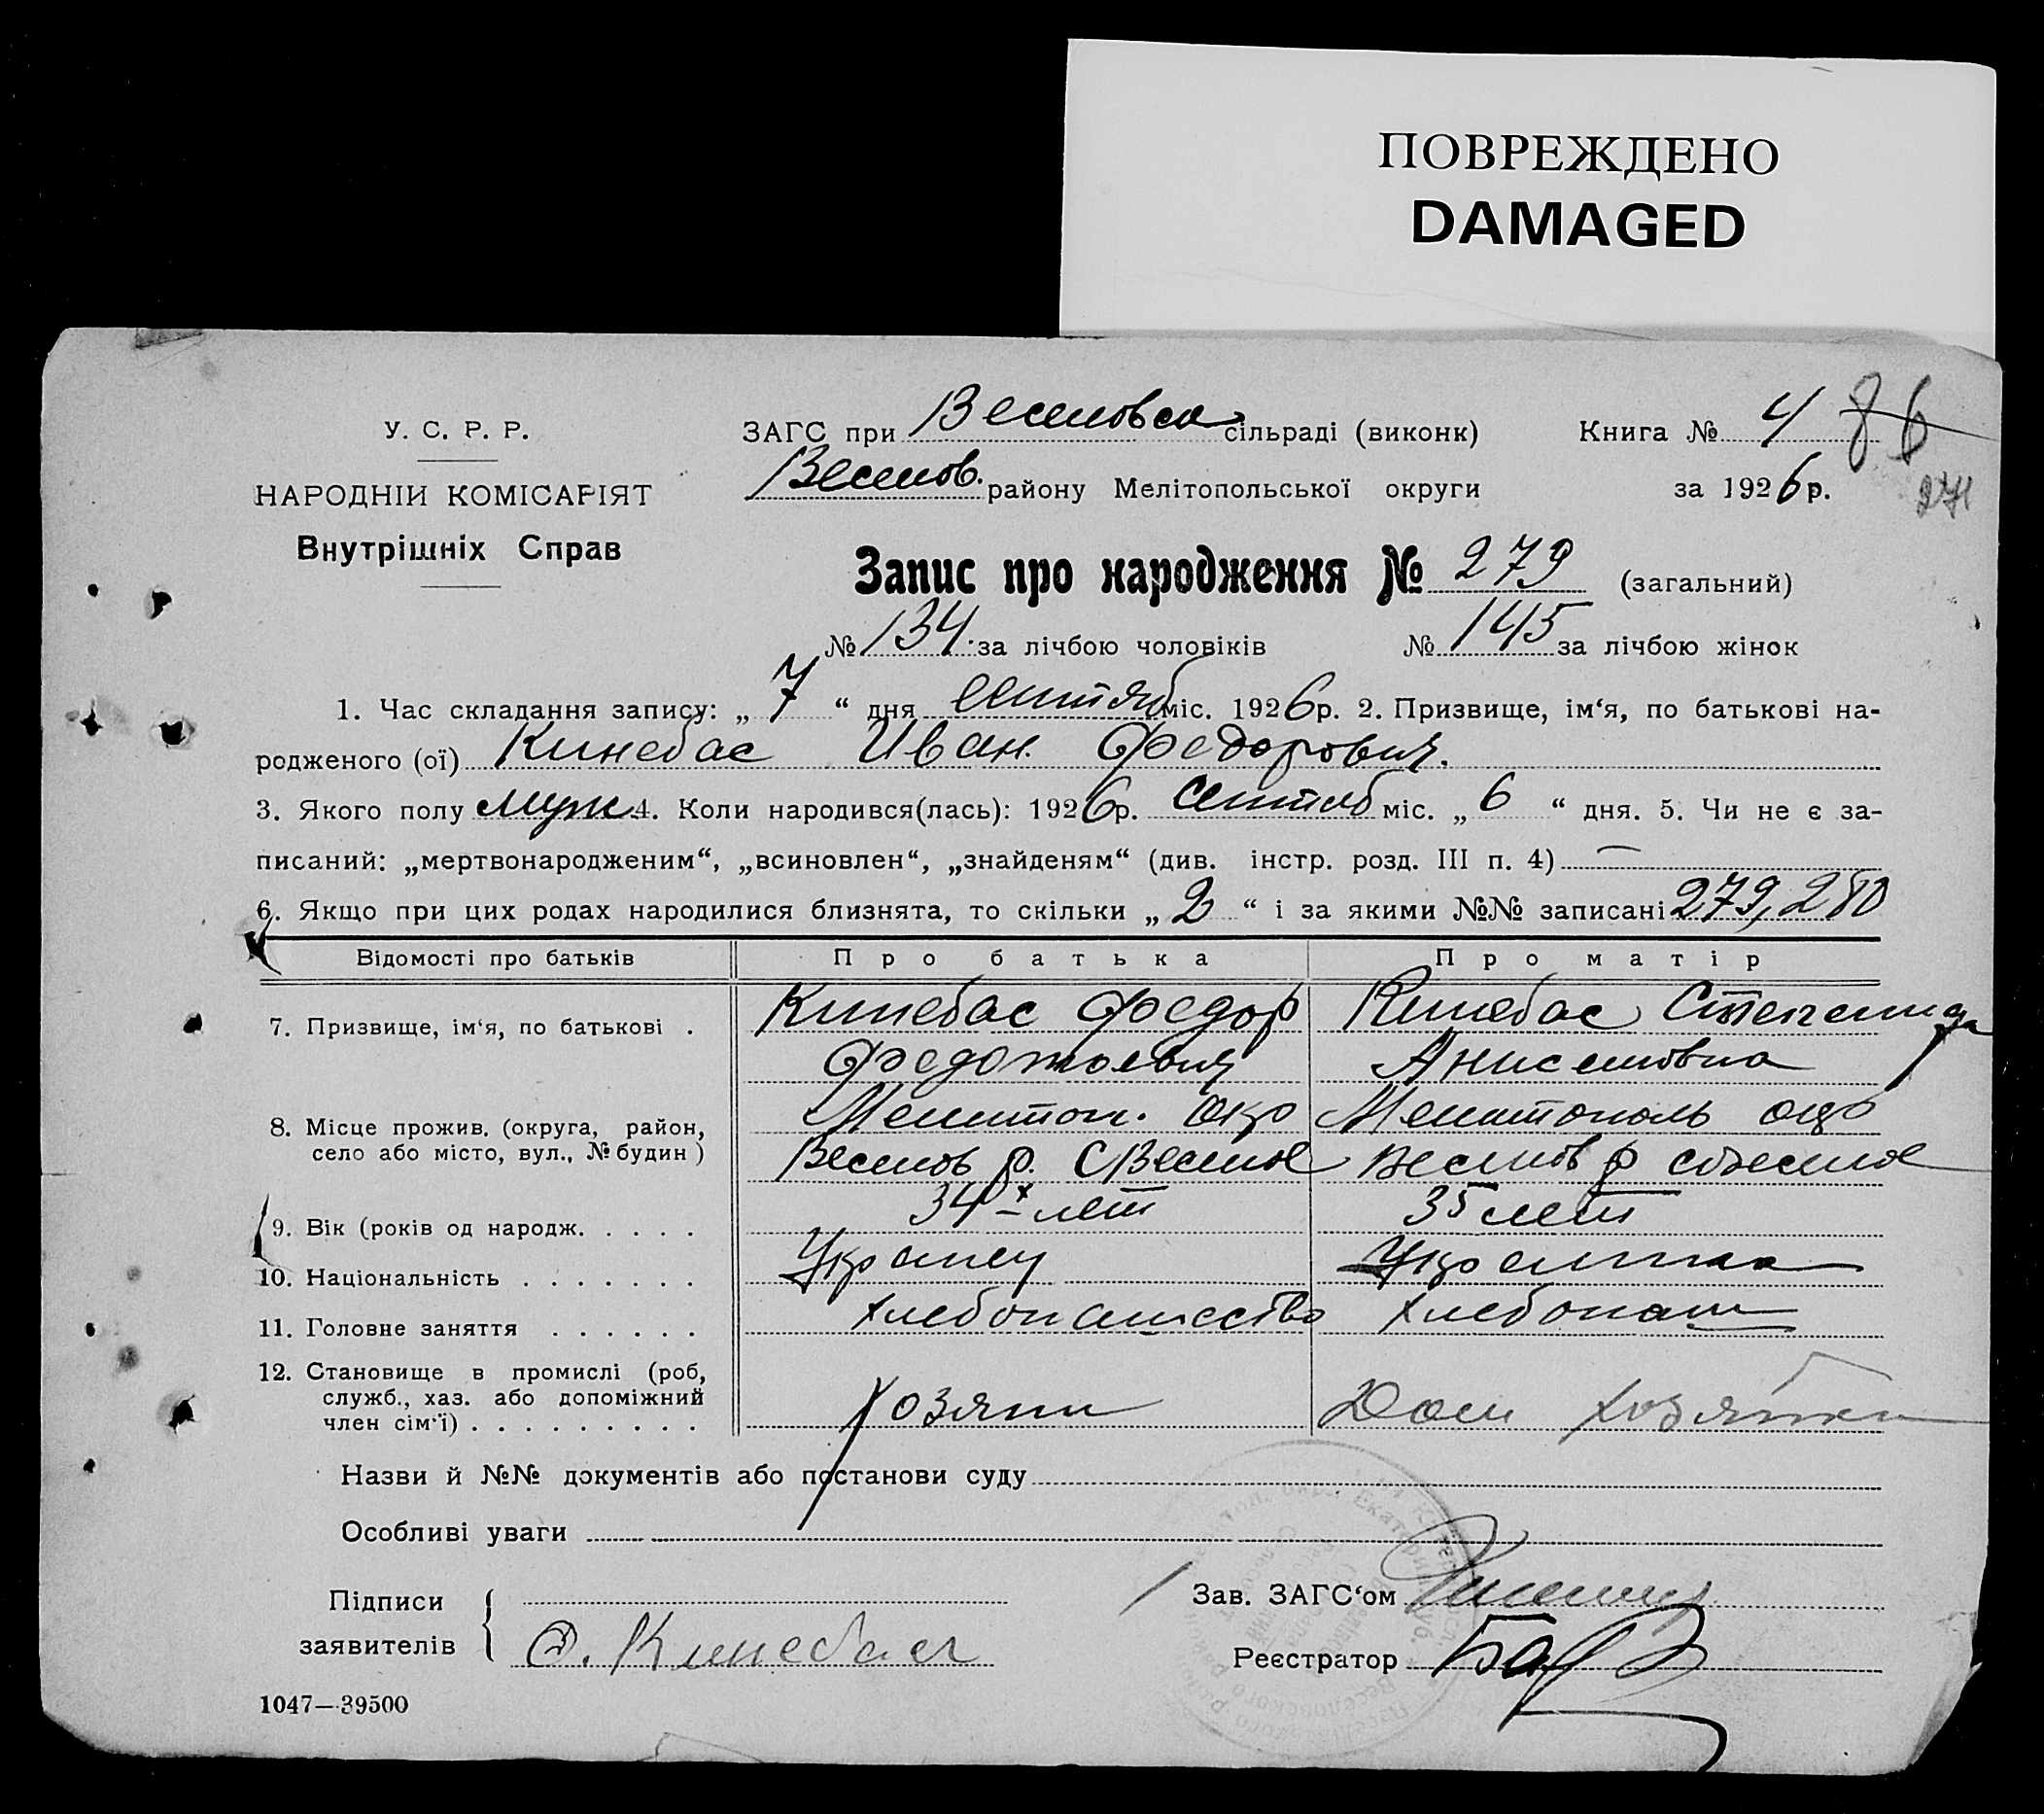 ПОВРЕЖДЕНО
DAMAGED
У. С. Р. Р.
НАРОДНІЙ КОМІСАРІЯТ
Внутрішніх Справ
ЗАГС при Веселовск сільраді (виконк) Книга № 4 86
Веселов. району Мелітопольської округи за 1926 р. 271
Запис про народження № 279 (загальний)
№ 134 за лічбою чоловіків № 145 за лічбою жінок
1. Час складання запису: „ 7 “ дня сентяб міс. 1926 р. 2. Призвище, ім‘я, по батькові на-
родженого (ої) Кинебас Иван Федорович.
3. Якого полу муж 4. Коли народився(лась): 1926 р. сентяб міс. „ 6 “ дня. 5. Чи не є за-
писаний: „мертвонародженим“, „всиновлен“, „знайденям“ (див. інстр. розд. III п. 4) —
6. Якщо при цих родах народилися близнята, то скільки „ 2 “ і за якими №№ записані 279, 280
Відомості про батьків Про батька Про матір
7. Призвище, ім‘я, по батькові . Кинебас Федор Кинебас Степанида
Федотович Анисимовна
8. Місце прожив. (округа, район, Мелитоп. окр Мелитополь окр
село або місто, вул., № будин) Веселов р. с Веселое Веселов р с Веселое
9. Вік (років од народж. . . . . 34 х лет 35 лет
10. Національність . . . . . . . Украинец Украинка
11. Головне заняття . . . . . . Хлебопашество Хлебопаш
12. Становище в промислі (роб,
служб., хаз. або допоміжний
член сім‘ї) . . . . . . . . . Хозяин Дом хозяйка
Назви й №№ документів або постанови суду
Особливі уваги
Підписи
заявителів Ф. Кинебас
Зав. ЗАГС‘ом
Реєстратор
1047—39500